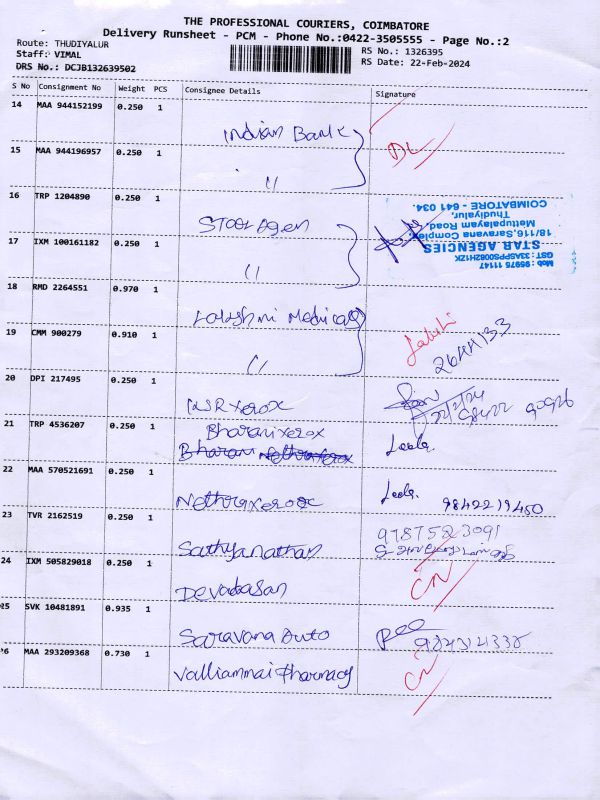 THE PROFESSIONAL COURIERS, COIMBATORE
Delivery Runsheet - PCM - Phone No.:0422-3505555 - Page No.:2
Route: THUDIYALUR
Staff: VIMAL RS No.: 1326395
DRS No.: DCJB132639502 RS Date: 22-Feb-2024
S No Consignment No Weight PCS Consignee Details Signature
14 MAA 944152199 0.250 1 Indian Bank
15 MAA 944196957 0.250 1 " DL
16 TRP 1204890 0.250 1
17 IXM 100161182 0.250 1 "
Mob : 95975 11147
GST : 33ASFPS0082H1ZK
STAR AGENCIES
18/116, Saravana Complex,
Mettupalayam Road,
Thudiyalur,
COIMBATORE - 641 034.
18 RMD 2264551 0.970 1 Lakshmi Medicals
19 CMM 900279 0.910 1 "
20 DPI 217495 0.250 1 xerox 22/2/24
21 TRP 4536207 0.250 1 Bharani xerox
Bharani Leela.
22 MAA 570521691 0.250 1 Nethra xerox Leela. 9842219450
23 TVR 2162519 0.250 1 Sathyanathan 9787523091
24 IXM 505829018 0.250 1 Devadasan CN
25 SVK 10481891 0.935 1 Saravana Auto
26 MAA 293209368 0.730 1 Valliammai Pharmacy CN